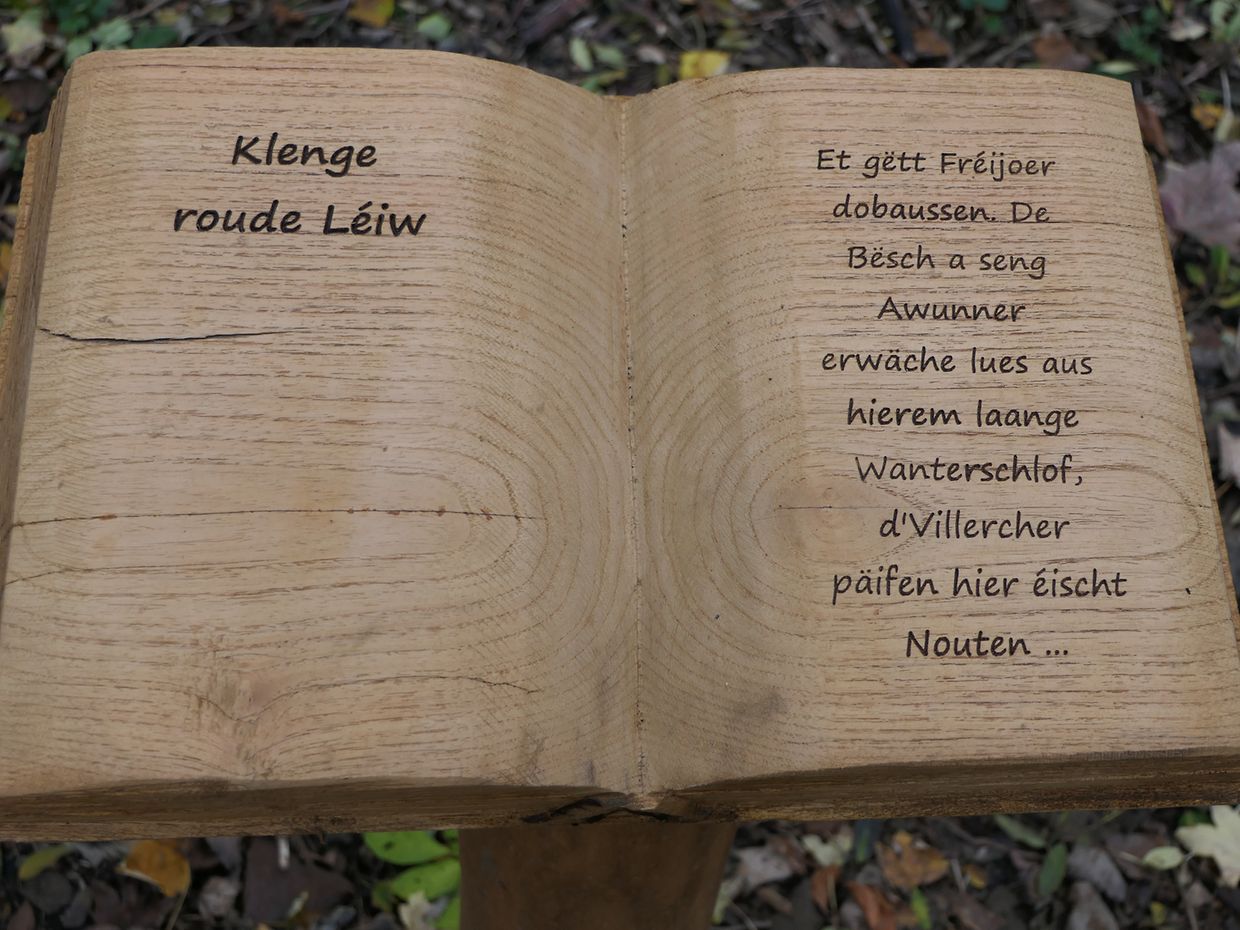 Klenge
roude Léiw
Et gëtt Fréijoer
dobaussen. De
Bësch a seng
Awunner
erwäche lues aus
hierem laange
Wanterschlof,
d'Villercher
päifen hier éischt
Nouten ...